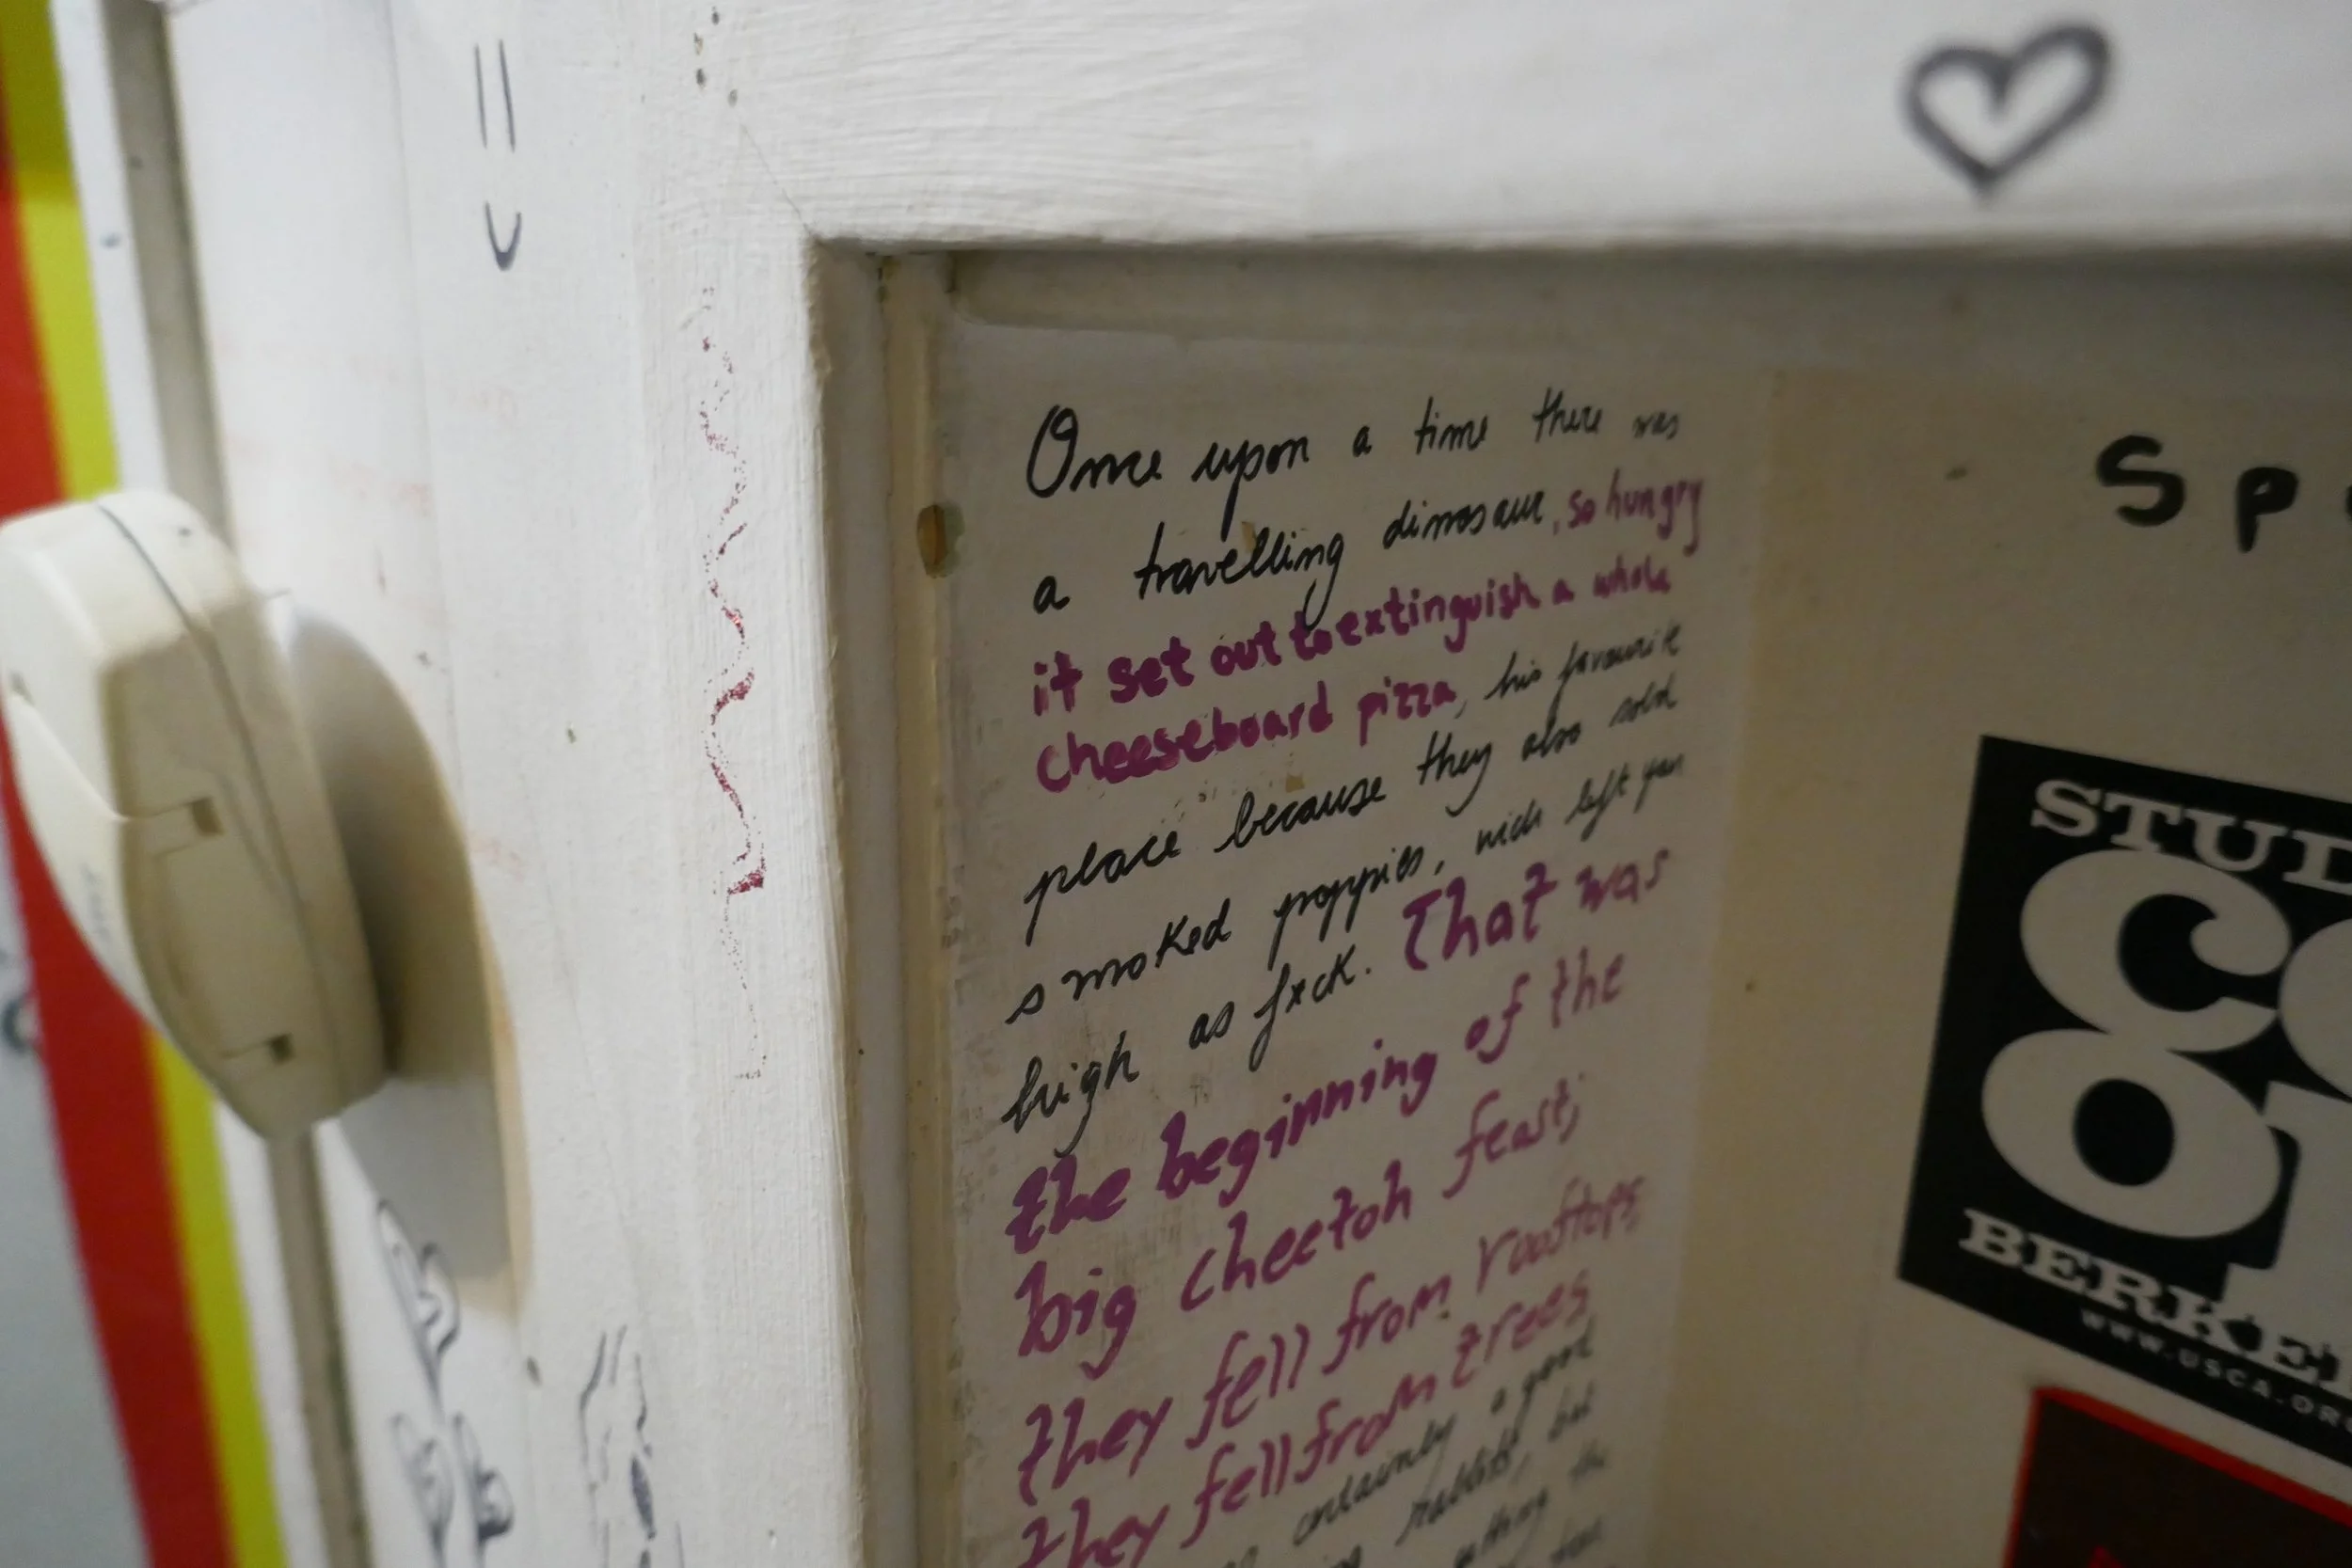 Once upon a time there was
a travelling dinosaur, so hungry
it set out to extinguish a whole
cheeseboard pizza, his favourite
place because they also sold
smoked poppies, wich left you
high as fxck. That was
the beginning of the
big cheetoh feast;
they fell from rooftops
they fell from trees
certainly a good
rabbit, but
the
Sp
STUD
CO
OP
BERKEL
WWW.USCA.OR